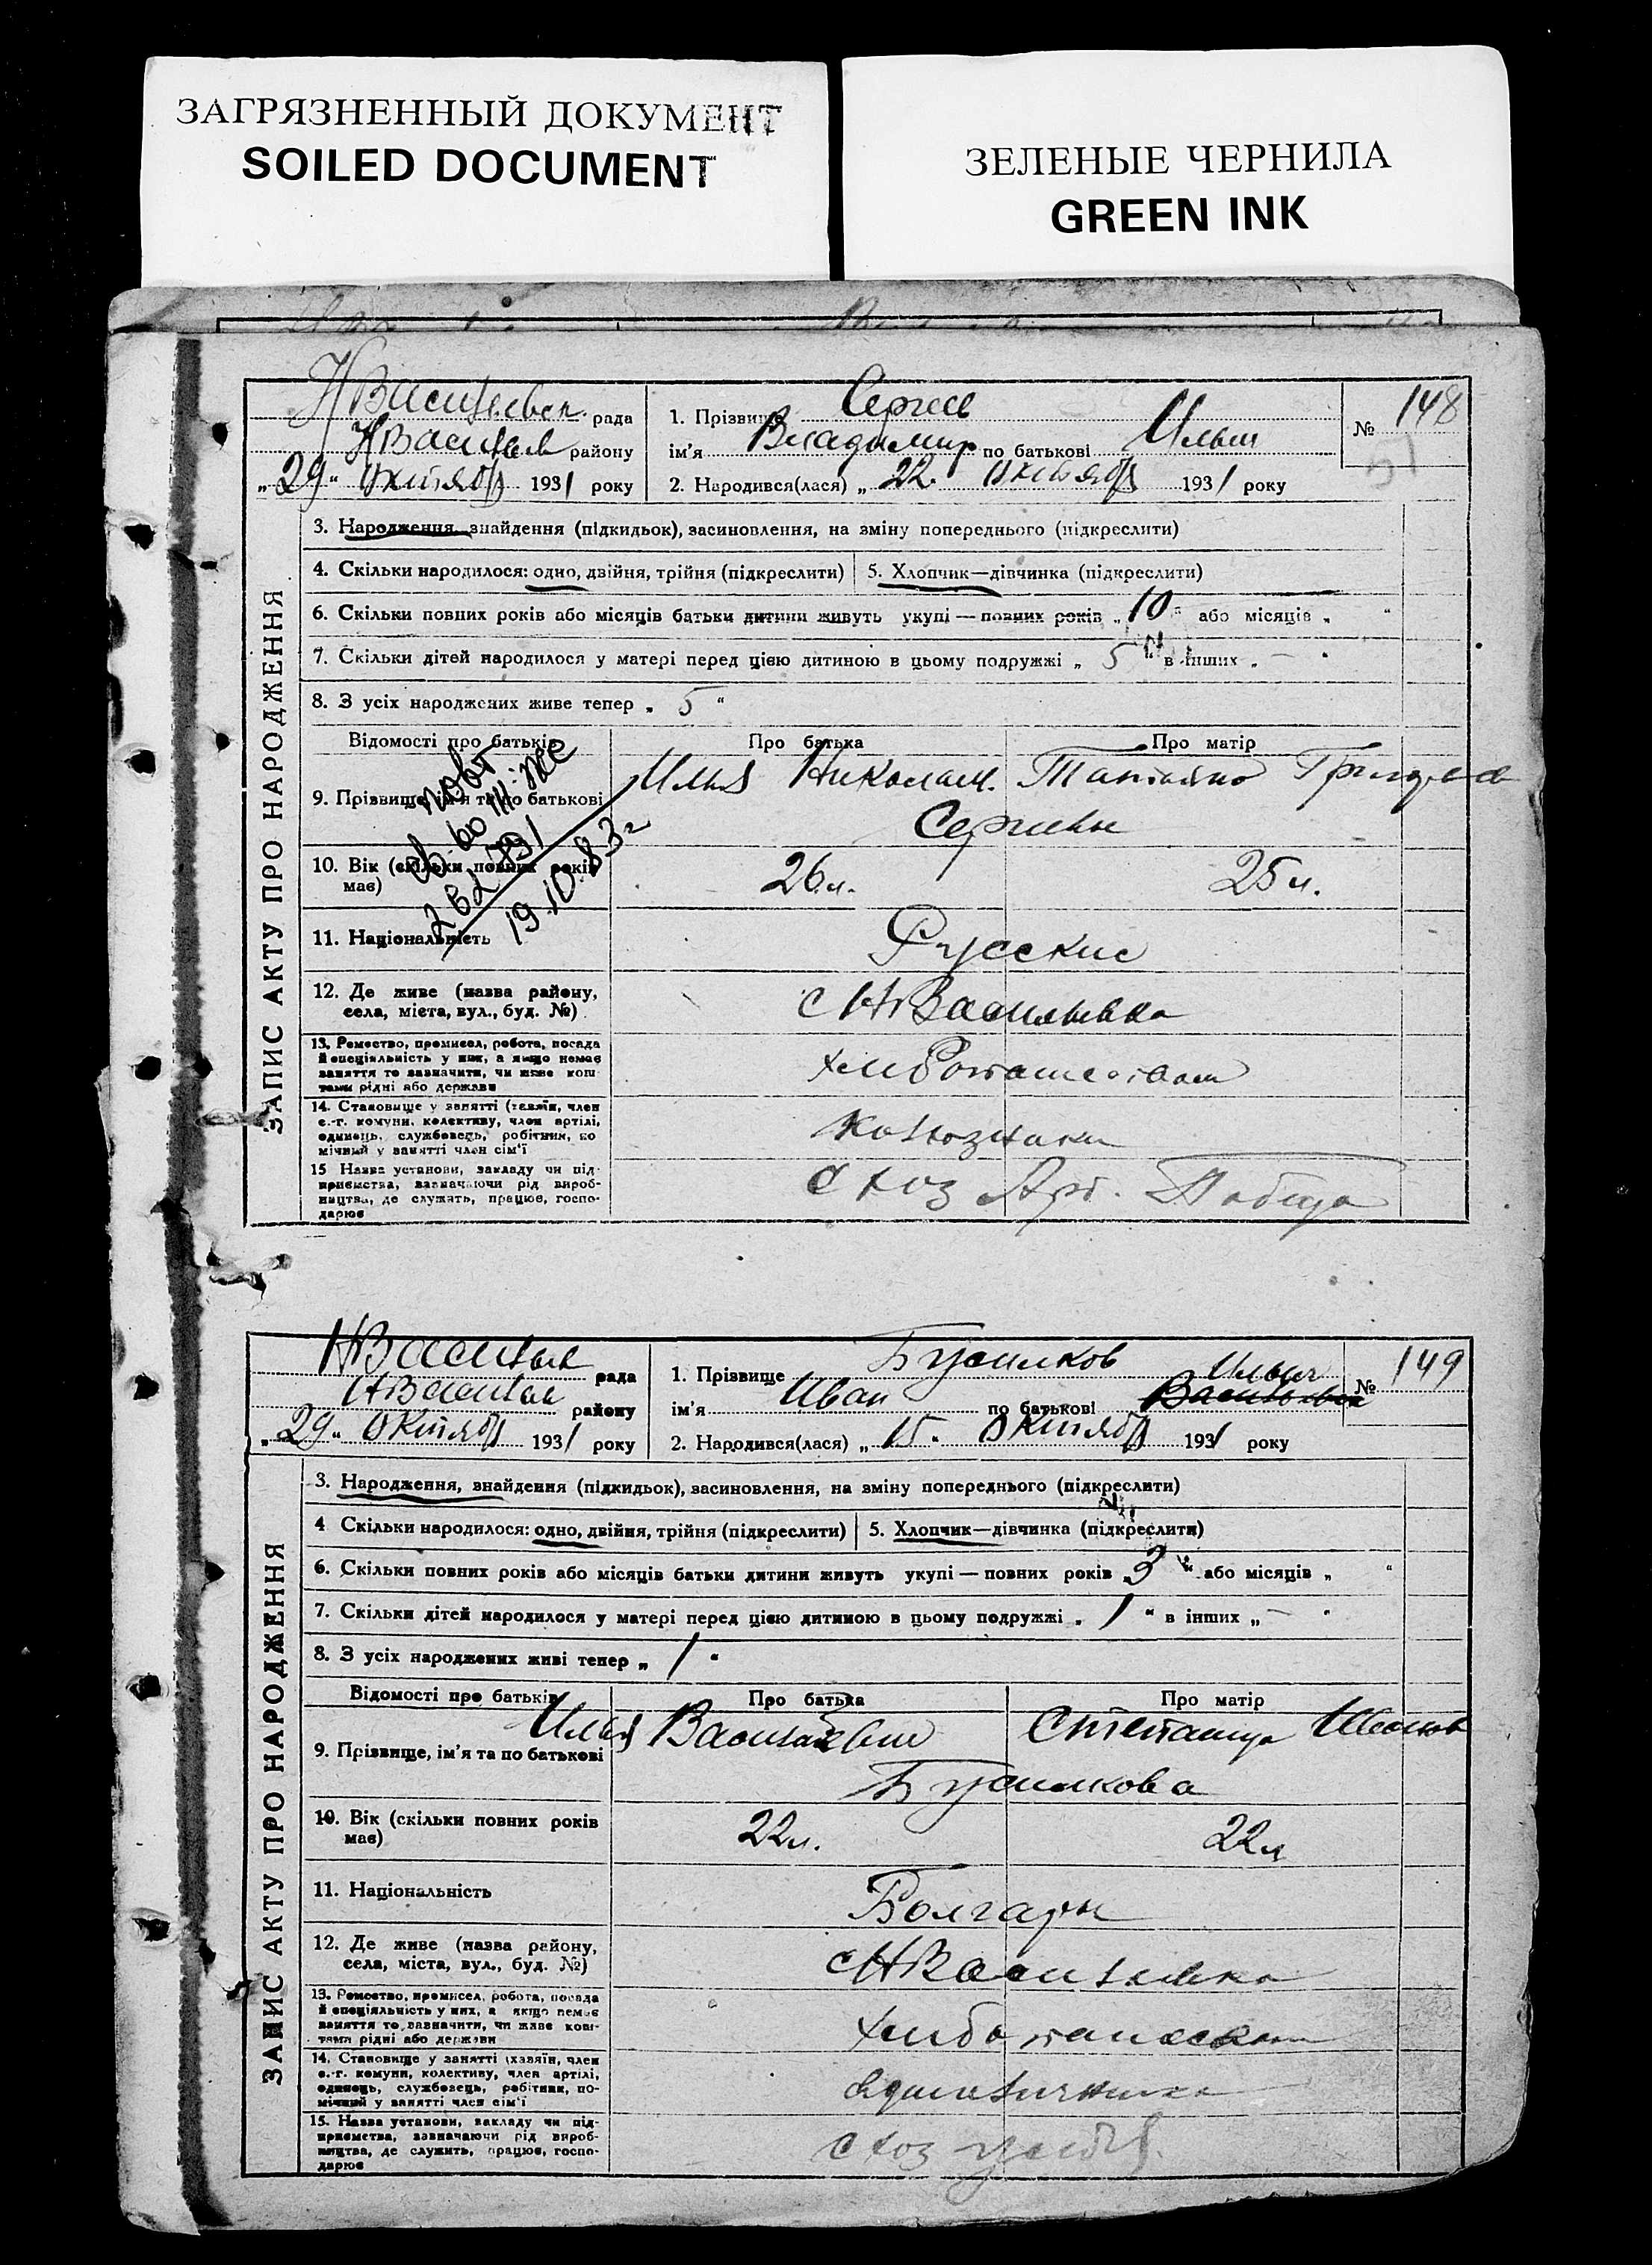 ЗАГРЯЗНЕННЫЙ ДОКУМЕНТ
SOILED DOCUMENT
ЗЕЛЕНЫЕ ЧЕРНИЛА
GREEN INK
ЗАПИС АКТУ ПРО НАРОДЖЕННЯ
рада
району
„29“ Октября 1931 року
1. Прізвище Сергеев
ім'я Владимир по батькові Ильич
2. Народився(лася) „22“ Октября 1931 року
№ 148
3. Народження, знайдення (підкидьок), засиновлення, на зміну попереднього (підкреслити)
4. Скільки народилося: одно, двійня, трійня (підкреслити) 5. Хлопчик—дівчинка (підкреслити)
6. Скільки повних років або місяців батьки дитини живуть укупі — повних років „10“ або місяців „ “
7. Скільки дітей народилося у матері перед цією дитиною в цьому подружжі „5“ в інших „—“
8. З усіх народжених живе тепер „5“
Відомості про батьків Про батька Про матір
повт
262791
19.10.83г
9. Прізвище, ім'я та по батькові Илья Николаев. Татьяна
Сергеевы
10. Вік (скільки повних років має) 26 л. 25 л.
11. Національність Русские
12. Де живе (назва району, села, міста, вул., буд. №) с НВасильевка
13. Ремество, промисел, робота, посада
й спеціяльність у них, а якщо немає
заняття то зазначити, чи живе кош-
тами рідні або держави
14. Становище у занятті (хазяїн, член
с.-г. комуни, колективу, член артілі,
одинець, службовець, робітник, по-
мічний у занятті член сім'ї
15 Назва установи, закладу чи під-
приємства, зазначаючи рід вироб-
ництва, де служать, працює, госпо-
дарює
с хоз Арт. Победа
ЗАПИС АКТУ ПРО НАРОДЖЕННЯ
рада
району
„29“ Октября 1931 року
1. Прізвище
ім'я Иван по батькові Ильич Васильевич
2. Народився(лася) „15“ Октября 1931 року
№ 149
3. Народження, знайдення (підкидьок), засиновлення, на зміну попереднього (підкреслити)
4 Скільки народилося: одно, двійня, трійня (підкреслити) 5. Хлопчик—дівчинка (підкреслити)
6. Скільки повних років або місяців батьки дитини живуть укупі — повних років „3“ або місяців „ “
7. Скільки дітей народилося у матері перед цією дитиною в цьому подружжі „1“ в інших „—“
8. З усіх народжених живі тепер „1“
Відомості про батьків Про батька Про матір
9. Прізвище, ім'я та по батькові Илья Васильевич
10. Вік (скільки повних років має) 22 л. 22 л
11. Національність Болгары
12. Де живе (назва району, села, міста, вул., буд. №) с НВасильевка
13. Ремество, промисел, робота, посада
й спеціяльність у них, а якщо немає
заняття то зазначити, чи живе кош-
тами рідні або держави
14. Становище у занятті (хазяїн, член
с.-г. комуни, колективу, член артілі,
одинець, службовець, робітник, по-
мічний у занятті член сім'ї
15. Назва установи, закладу чи під-
приємства, зазначаючи рід вироб-
ництва, де служить, працює, госпо-
дарює
с хоз